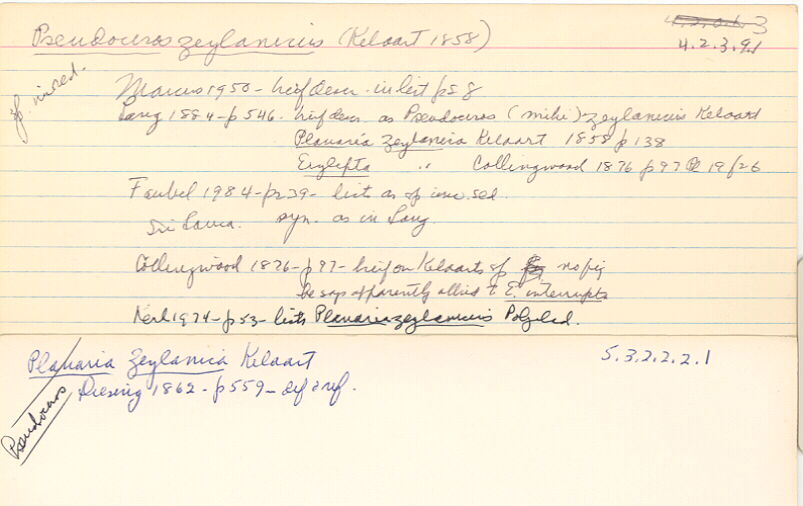 Pseudoceros zeylanicus (Kelaart 1858)
4.2.3.91
sp. inc. sed.
Marcus 1950 - brief descr. in list p 58
Lang 1884 - p 546. brief descr. as Pseudoceros (mihi) zeylanicus Kelaart
Planaria zeylanica Kelaart 1858 p 138
Eurylepta " Collingwood 1876 p 97 19/26
Faubel 1984 - p 239 - lists as sp inc. sed.
Sri Lanca. syn. as in Lang.
Collingwood 1876 - p 97 - brief on Kelaarts sp no fig
he says apparently allied t E. interrupta
1974 - p 53 - lists Planaria zeylanicus Polyclad.
Planaria Zeylanica Kelaart
5.3.2.2.2.1
Diesing 1862 - p 559 - def & ref.
Pseudoceros